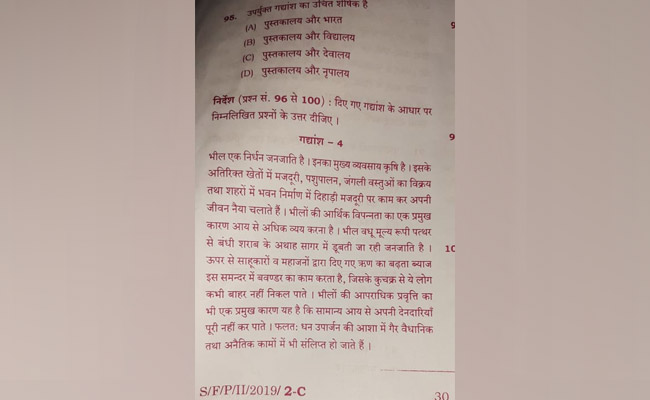 95. उपर्युक्त गद्यांश का उचित शीर्षक है
(A) पुस्तकालय और भारत
(B) पुस्तकालय और विद्यालय
(C) पुस्तकालय और देवालय
(D) पुस्तकालय और नृपालय
निर्देश (प्रश्न सं. 96 से 100) : दिए गए गद्यांश के आधार पर
निम्नलिखित प्रश्नों के उत्तर दीजिए ।
गद्यांश – 4
भील एक निर्धन जनजाति है । इनका मुख्य व्यवसाय कृषि है । इसके
अतिरिक्त खेतों में मजदूरी, पशुपालन, जंगली वस्तुओं का विक्रय
तथा शहरों में भवन निर्माण में दिहाड़ी मजदूरी पर काम कर अपनी
जीवन नैया चलाते हैं । भीलों की आर्थिक विपन्नता का एक प्रमुख
कारण आय से अधिक व्यय करना है । भील वधू मूल्य रूपी पत्थर
से बंधी शराब के अथाह सागर में डूबती जा रही जनजाति है ।
ऊपर से साहूकारों व महाजनों द्वारा दिए गए ऋण का बढ़ता ब्याज
इस समन्दर में बवण्डर का काम करता है, जिसके कुचक्र से ये लोग
कभी बाहर नहीं निकल पाते । भीलों की आपराधिक प्रवृत्ति का
भी एक प्रमुख कारण यह है कि सामान्य आय से अपनी देनदारियाँ
पूरी नहीं कर पाते । फलतः धन उपार्जन की आशा में गैर वैधानिक
तथा अनैतिक कामों में भी संलिप्त हो जाते हैं ।
S/F/P/II/2019/ 2-C
30
9
9
10